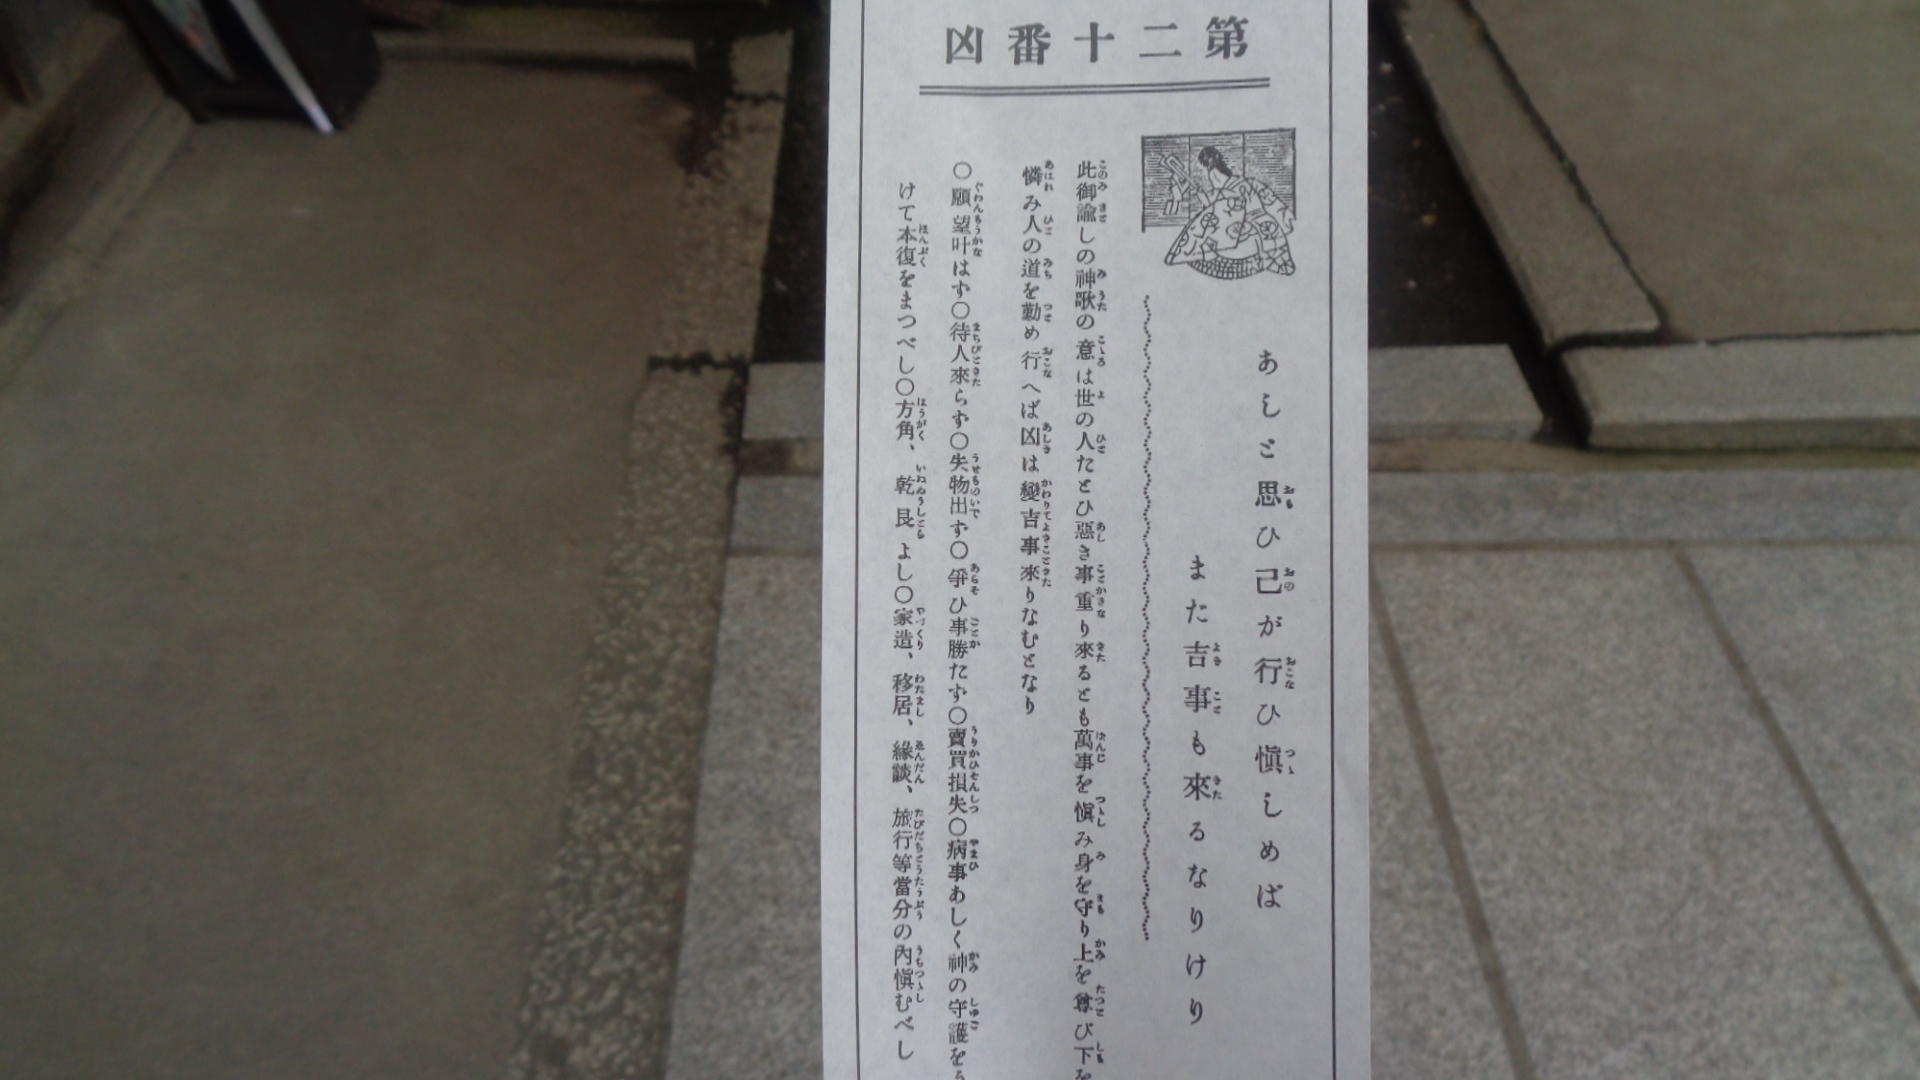 第二十番凶
あしと思ひ己が行ひ愼しめば
また吉事も來るなりけり
此御諭しの神歌の意は世の人たとひ惡き事重り來るとも萬事を愼み身を守り上を尊び下を
憐み人の道を勤め行へば凶は變吉事來りなむとなり
○願望叶はず○待人來らず○失物出ず○爭ひ事勝たず○賣買損失○病事あしく神の守護を
けて本復をまつべし○方角、乾艮よし○家造、移居、緣談、旅行等當分の內愼むべし